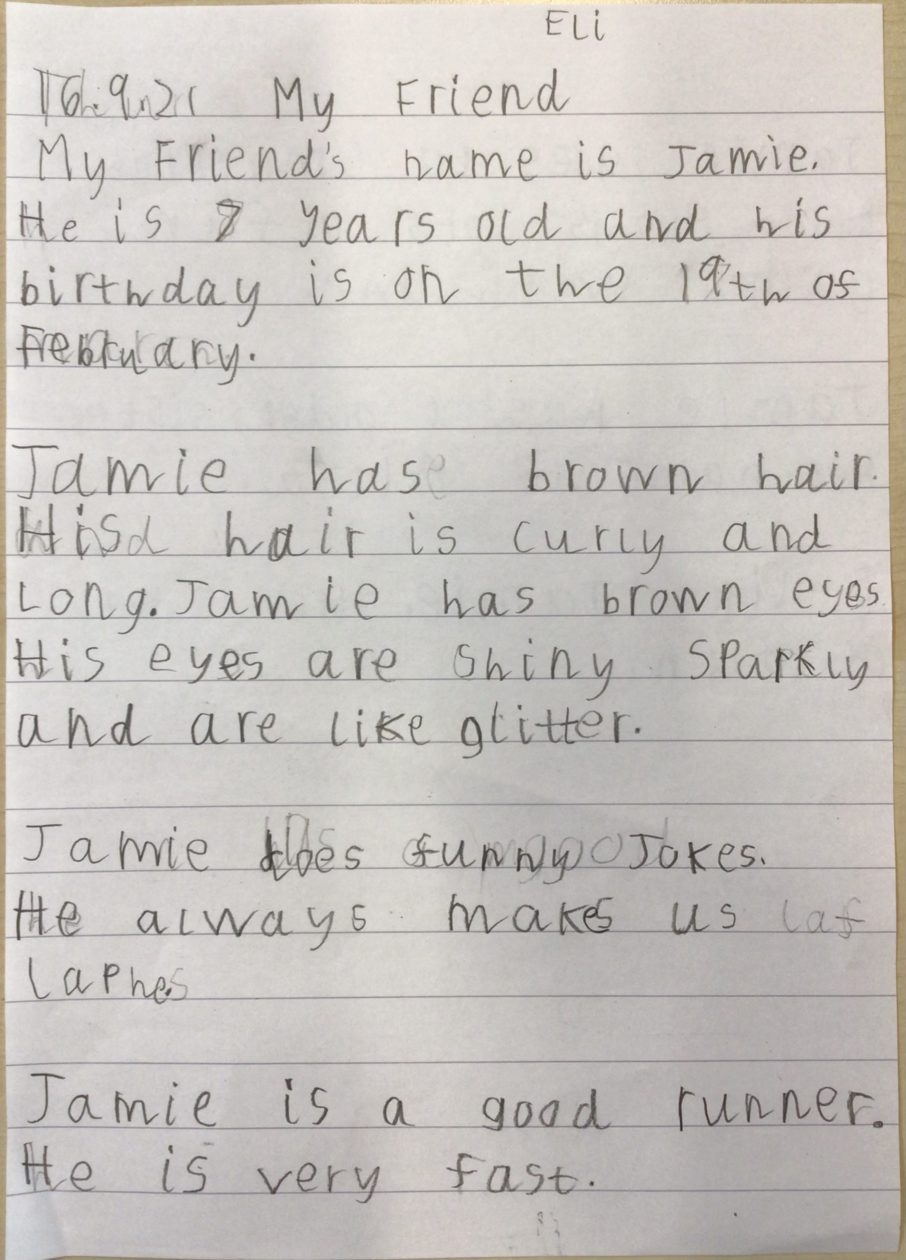 Eli
16.9.21 My Friend
My Friend's name is Jamie.
He is 7 years old and his
birthday is on the 19th of
February.
Jamie has brown hair.
His hair is curly and
Long. Jamie has brown eyes.
His eyes are shiny sparkly
and are like glitter.
Jamie does funny Jokes.
He always makes us
laphe
Jamie is a good runner.
He is very fast.